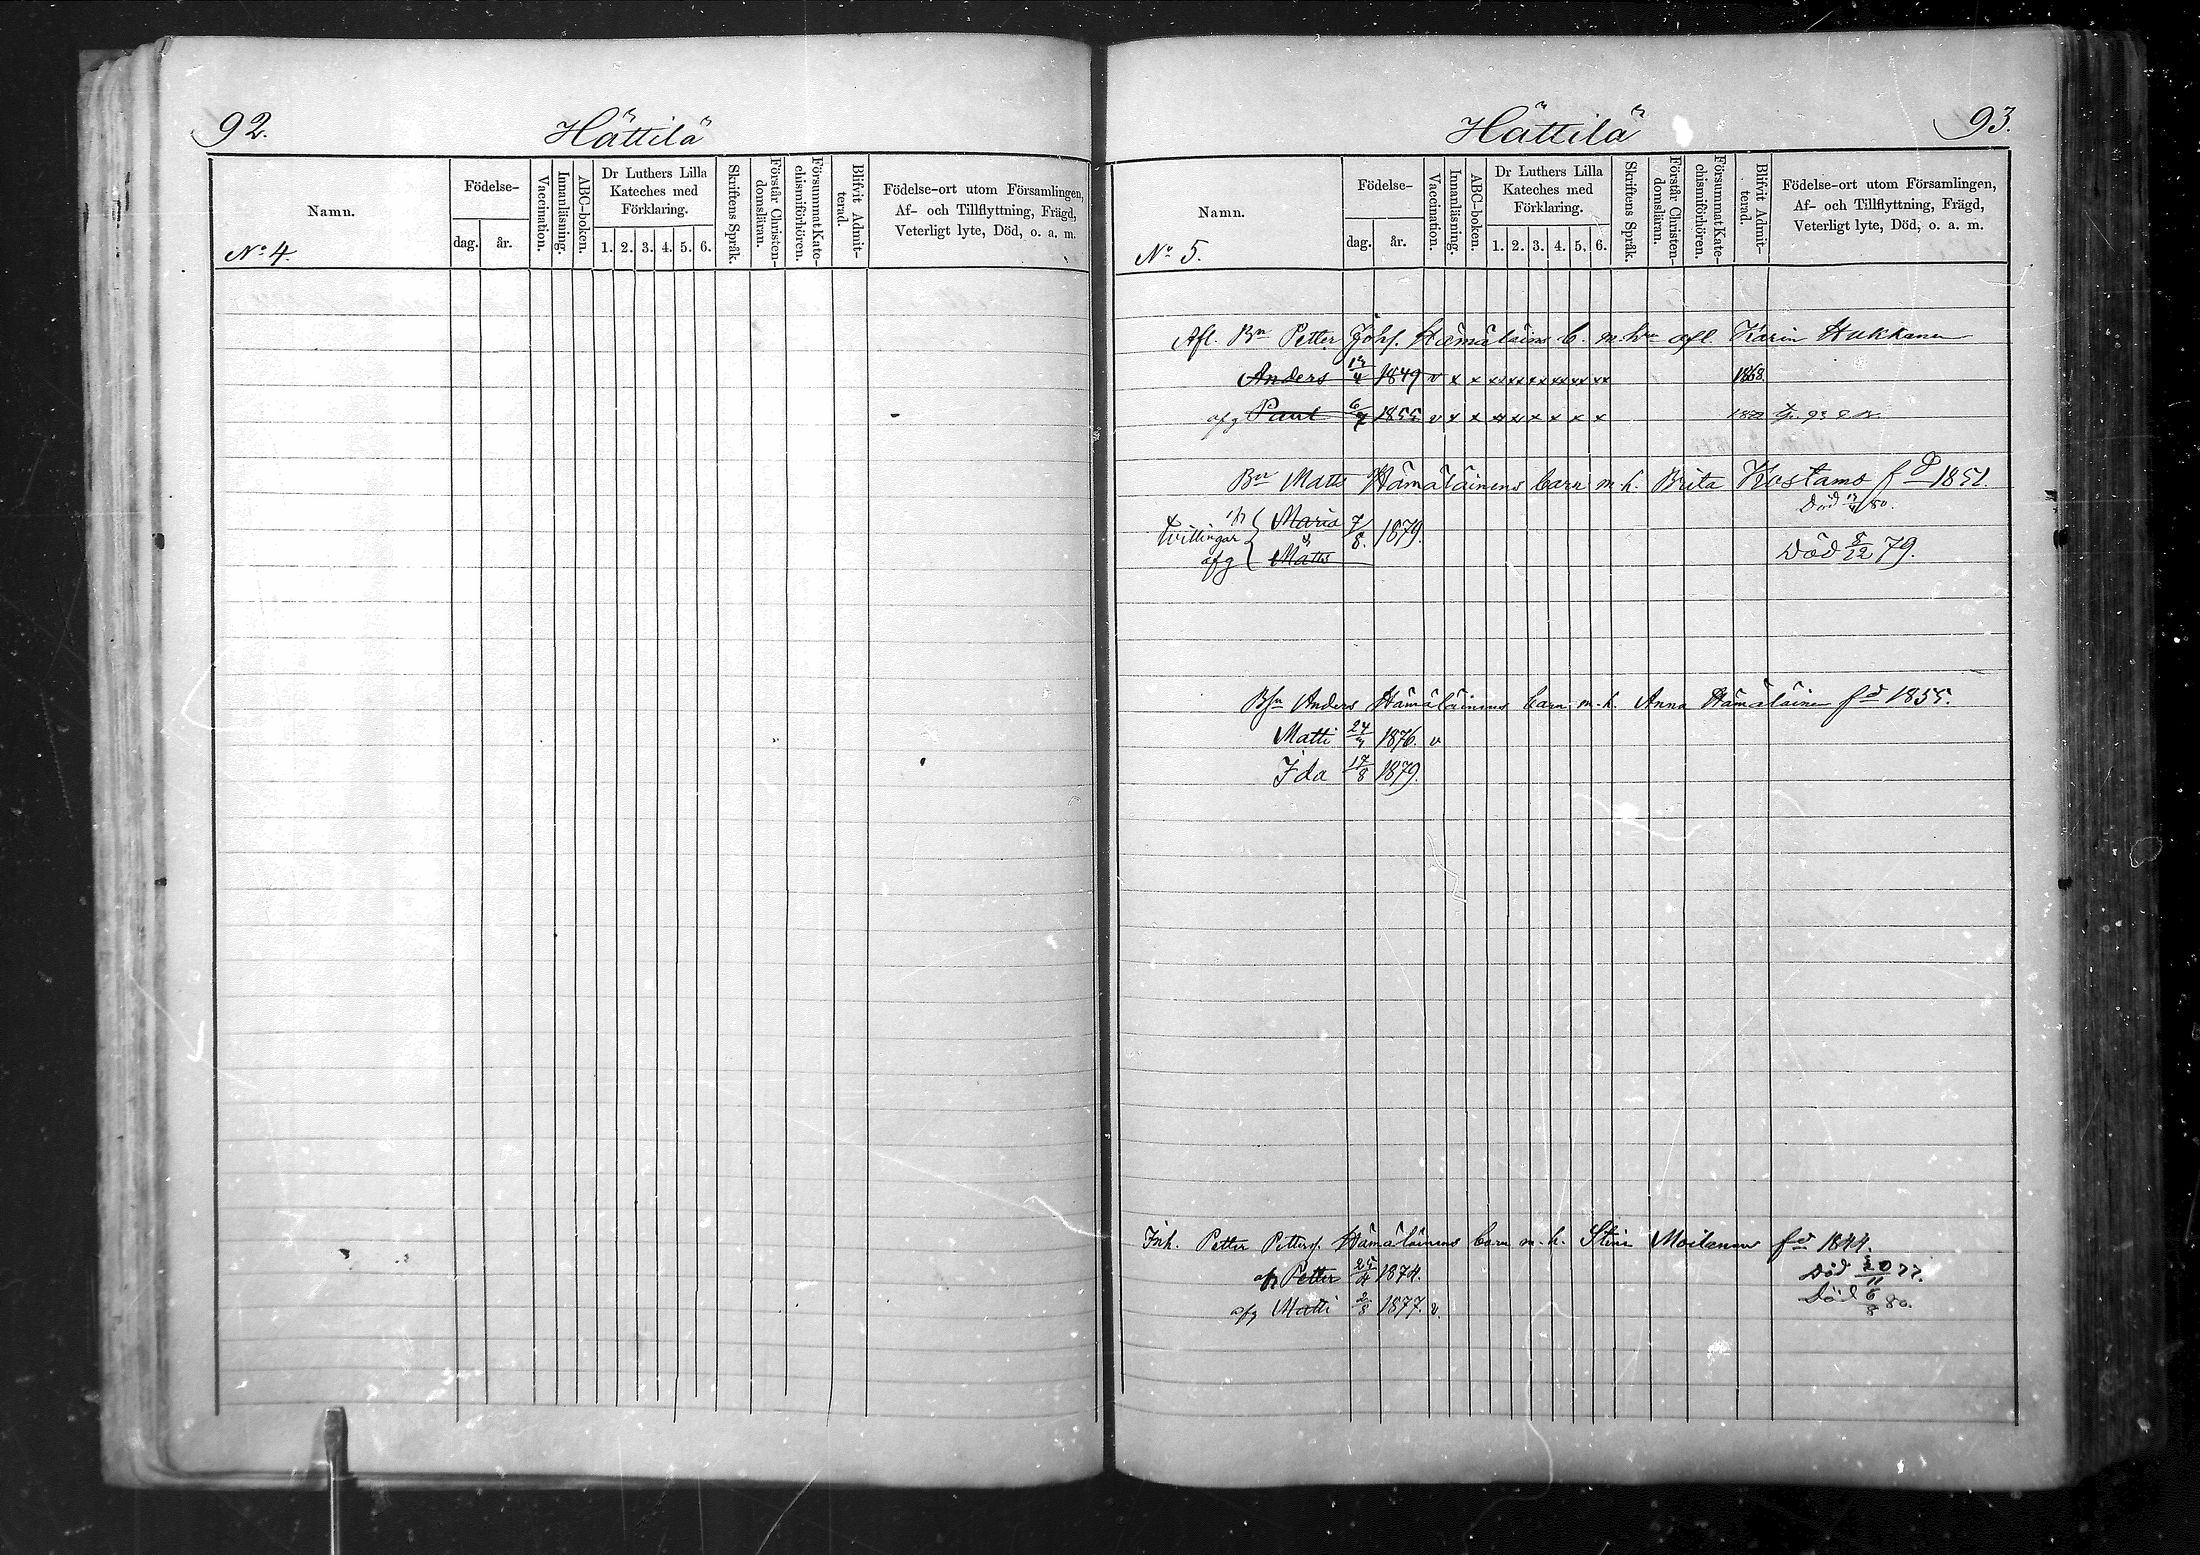 92.
Hättilä
Namn.
No 4.
Födelse-
dag. år.
Vaccination.
Innanläsning.
ABC-boken.
Dr Luthers Lilla
Kateches med
Förklaring.
1. 2. 3. 4. 5. 6.
Skriftens Språk.
Förstår Christen-
domsläran.
Försummat Kate-
chismiförhören.
Blifvit Admit-
terad.
Födelse-ort utom Församlingen,
Af- och Tillflyttning, Frägd,
Veterligt lyte, Död, o. a. m.
Hättilä
93.
Namn.
No 5.
Födelse-
dag. år.
Vaccination.
Innanläsning.
ABC-boken.
Dr Luthers Lilla
Kateches med
Förklaring.
1. 2. 3. 4. 5. 6.
Skriftens Språk.
Förstår Christen-
domsläran.
Försummat Kate-
chismiförhören.
Blifvit Admit-
terad.
Födelse-ort utom Församlingen,
Af- och Tillflyttning, Frägd,
Veterligt lyte, Död, o. a. m.
Afl. Bn Petter Johs. Hämäläins b. m. hu afl. Karin Hukkanen
Anders 1849 v x x xx xx xx xx xx xx 1868.
afg Paul 6/7 1855 v x x x x x x x x
Bn Matts Hämäläinens barn m. h. Brita Kostamo fd 1851.
Död 80.
Tvillingar Maria 7/8. 1879.
&
afg Matts Död 8/12 79.
Bsn Anders Hämäläinens barn m. h. Anna Hämäläinen fd 1855.
Matti 24 1876. v
Ida 17/8 1879.
Inh. Petter Petterss. Hämäläinens barn m. h. Stina Moilanen fd 1844.
afg Petter 25/4 1874. Död 20/11 77.
afg Matti 2/8 1877. v. Död 6/8 80.